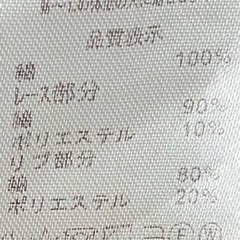 品質表示
綿 100%
レース部分
綿 90%
ポリエステル 10%
リブ部分
綿 80%
ポリエステル 20%